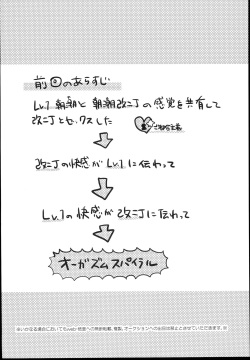 前回のあらすじ
Lv.1 朝潮と 朝潮改二丁の感覚を共有して
改二丁とセックスした
改二丁の快感がLv.1に伝わって
Lv.1の快感が改二丁に伝わって
オーガズムスパイラル